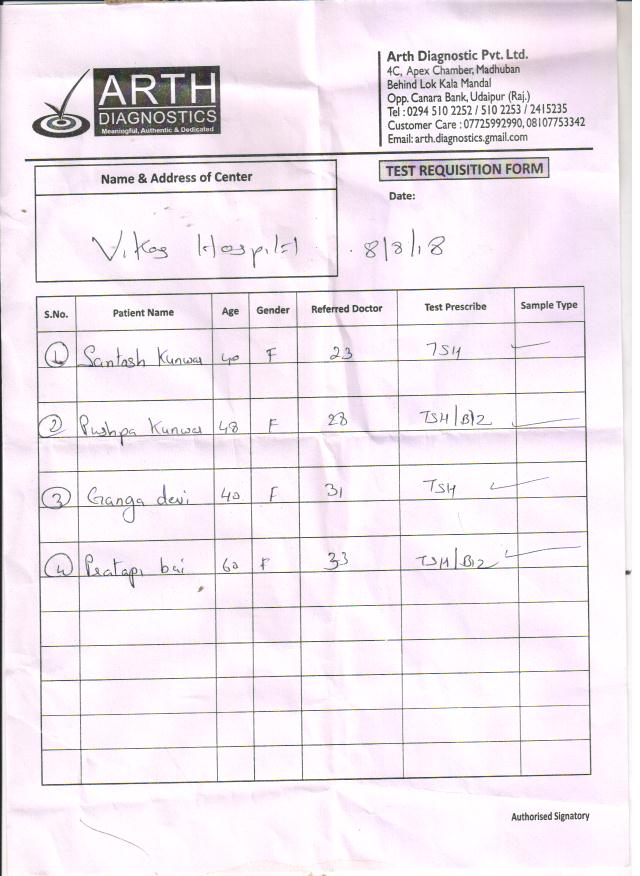 ARTH
DIAGNOSTICS
Meaningful, Authentic & Dedicated
Arth Diagnostic Pvt. Ltd.
4C, Apex Chamber, Madhuban
Behind Lok Kala Mandal
Opp. Canara Bank, Udaipur (Raj.)
Tel : 0294 510 2252 / 510 2253 / 2415235
Customer Care : 07725992990, 08107753342
Email: arth.diagnostics.gmail.com
Name & Address of Center
TEST REQUISITION FORM
Date:
Vikas Hospital 8/8/18
S.No. Patient Name Age Gender Referred Doctor Test Prescribe Sample Type
1 Santosh Kunwar 40 F 23 TSH
2 Pushpa Kunwar 48 F 28 TSH/B12
3 Ganga devi 40 F 31 TSH
4 Pratapi bai 60 F 33 TSH/B12
Authorised Signatory